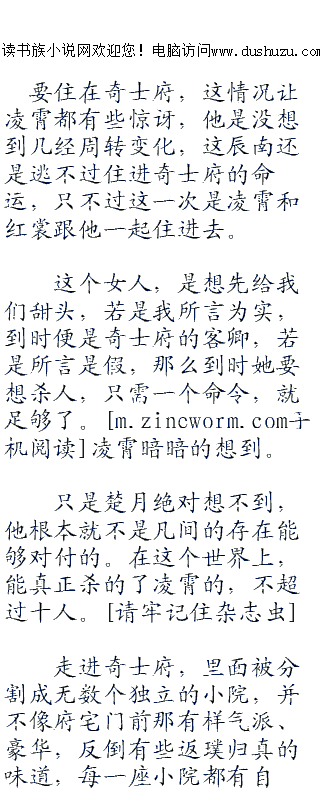 读书族小说网欢迎您！电脑访问www.dushuzu.com
要住在奇士府，这情况让
凌霄都有些惊讶，他是没想
到几经周转变化，这辰南还
是逃不过住进奇士府的命
运，只不过这一次是凌霄和
红裳跟他一起住进去。
这个女人，是想先给我
们甜头，若是我所言为实，
到时便是奇士府的客卿，若
是所言是假，那么到时她要
想杀人，只需一个命令，就
足够了。[m.zincworm.com手
机阅读]凌霄暗暗的想到。
只是楚月绝对想不到，
他根本就不是凡间的存在能
够对付的。在这个世界上，
能真正杀的了凌霄的，不超
过十人。[请牢记住杂志虫]
走进奇士府，里面被分
割成无数个独立的小院，并
不像府宅门前那有样气派、
豪华，反倒有些返璞归真的
味道，每一座小院都有自